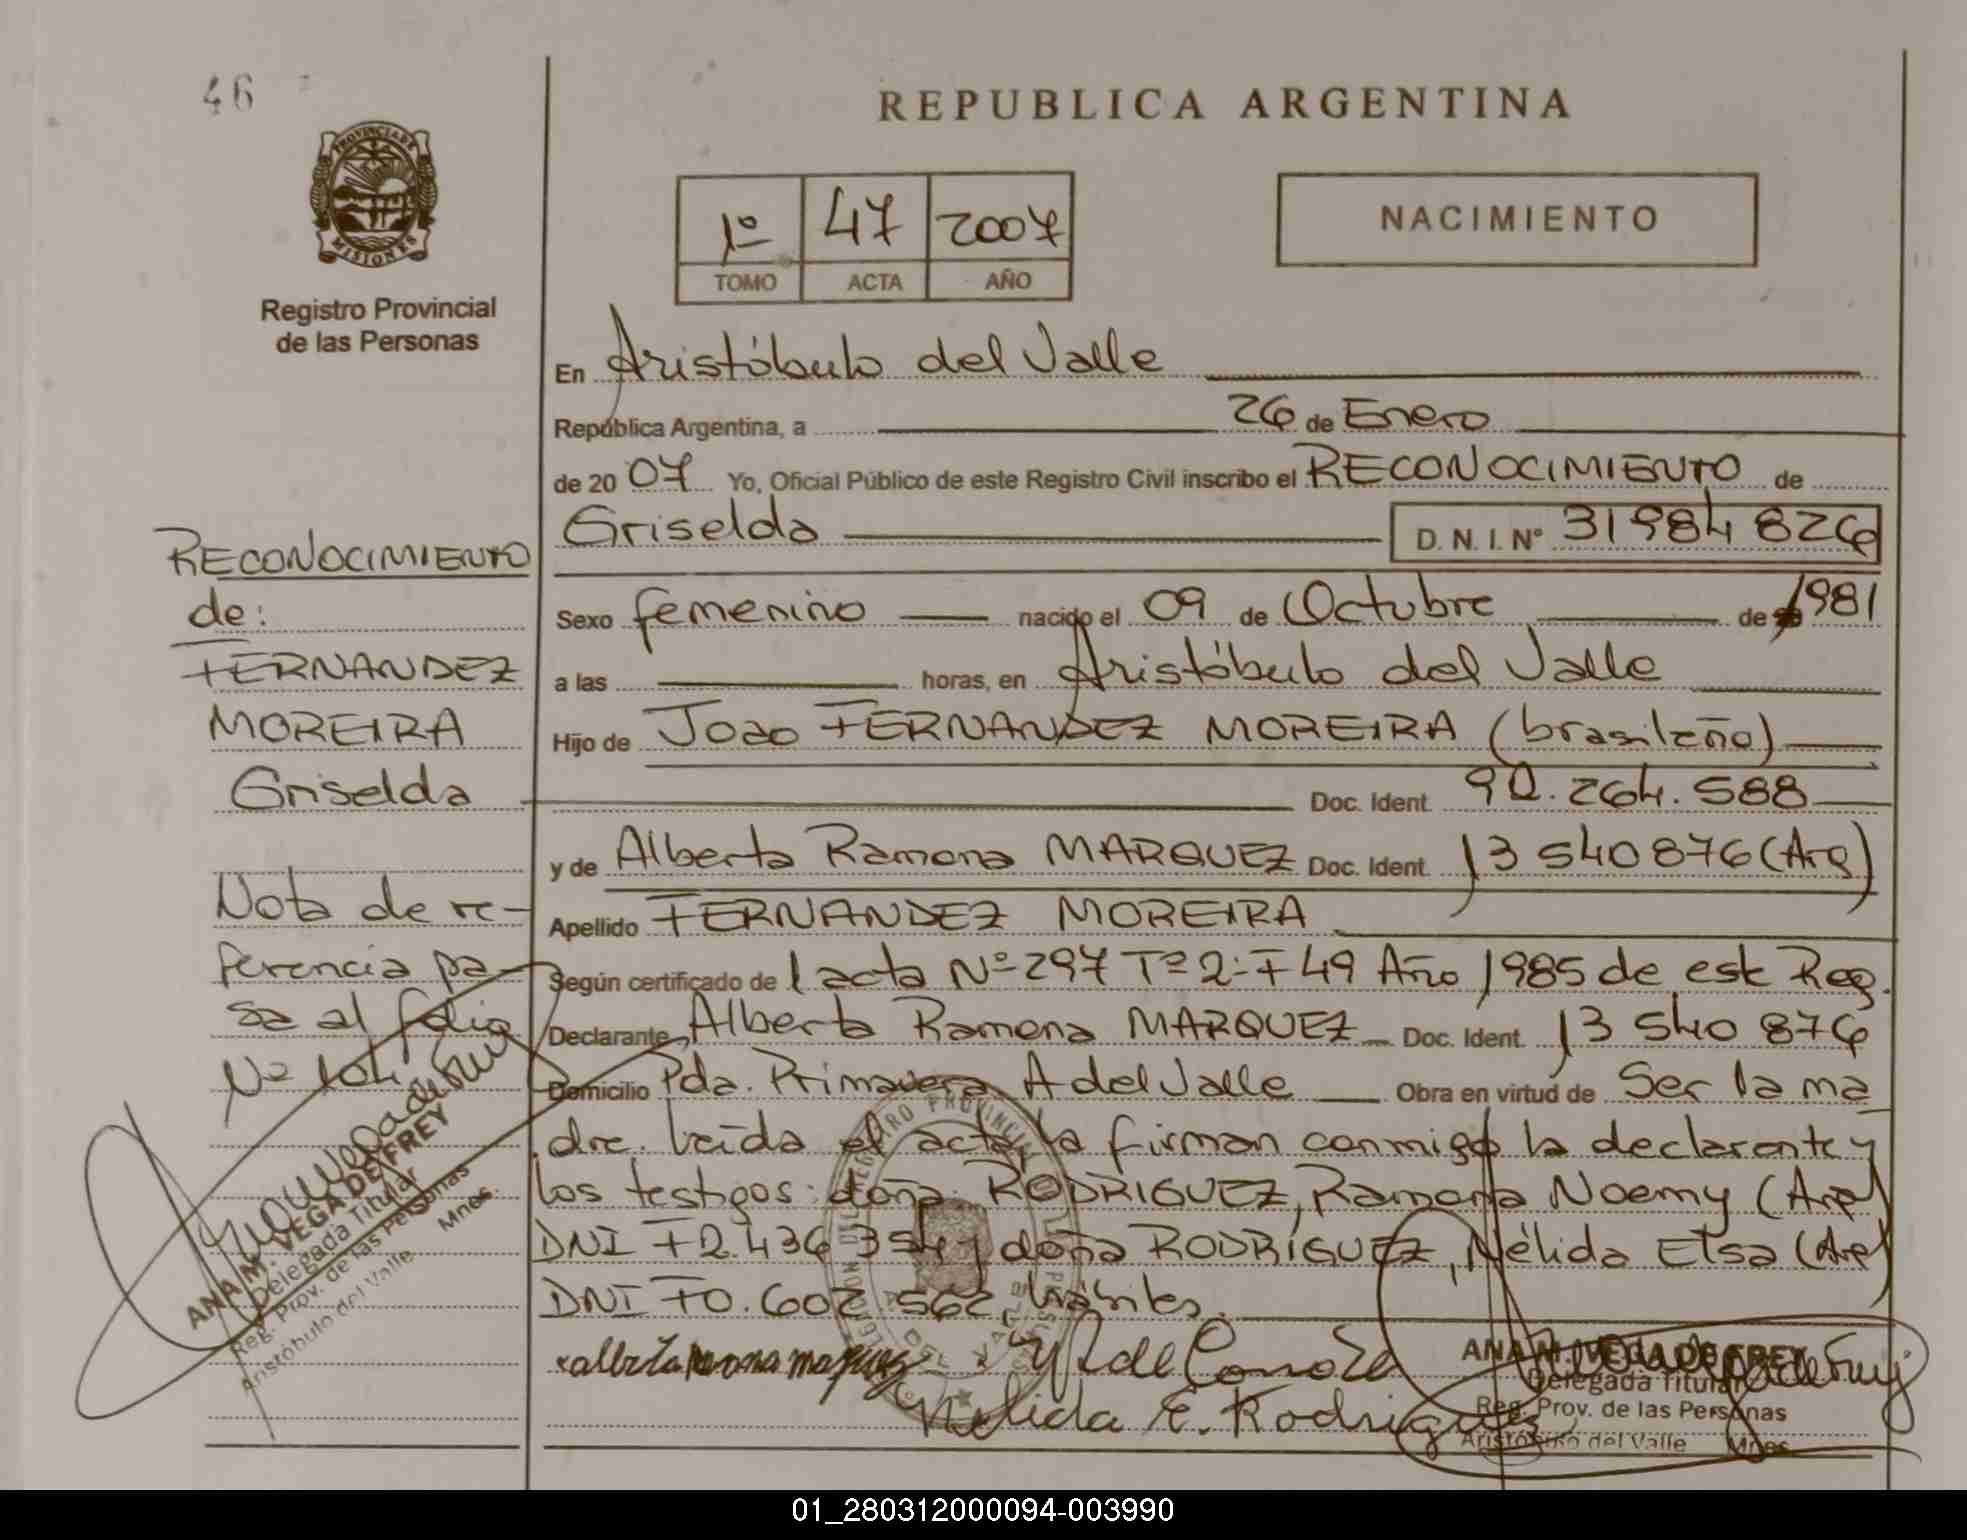 46
REPUBLICA ARGENTINA
PROVINCIA DE
MISIONES
1º 47 2007
TOMO ACTA AÑO
NACIMIENTO
Registro Provincial
de las Personas
En Aristóbulo del Valle
República Argentina, a 26 de Enero
de 20 07 Yo, Oficial Público de este Registro Civil inscribo el RECONOCIMIENTO de
Griselda D. N. I. Nº 31984826
Sexo femenino nacido el 09 de Octubre de 1981
a las horas, en Aristóbulo del Valle
Hijo de Joao FERNANDEZ MOREIRA (brasileño)
Doc. Ident. 92.264.588
y de Alberta Ramona MARQUEZ Doc. Ident. 13 540876 (Arg)
Apellido FERNANDEZ MOREIRA
Según certificado de 1 acta Nº 297 Tº 2: F 49 Año 1985 de este Reg.
Declarante Alberta Ramona MARQUEZ Doc. Ident. 13 540 876
Domicilio Pda. Primavera A del Valle Obra en virtud de Ser la ma
dre. Leída el acta, la firman conmigo la declarante y
los testigos: doña RODRIGUEZ, Ramona Noemy (Arg)
DNI F2.436 354 y doña RODRÍGUEZ, Nélida Elsa (Arg)
DNI F0.602.562 hábiles.
RECONOCIMIENTO
de:
FERNANDEZ
MOREIRA
Griselda
Nota de re-
ferencia pa-
sa al folio
Nº 104
ANA M. VEGA DE FREY
Delegada Titular
Reg. Prov. de las Personas
Aristóbulo del Valle Mnes.
alberta ramona marquez
Nelida E. Rodriguez
ANA M. VEGA DE FREY
Delegada Titular
Reg. Prov. de las Personas
Aristóbulo del Valle Mnes.
01_280312000094-003990